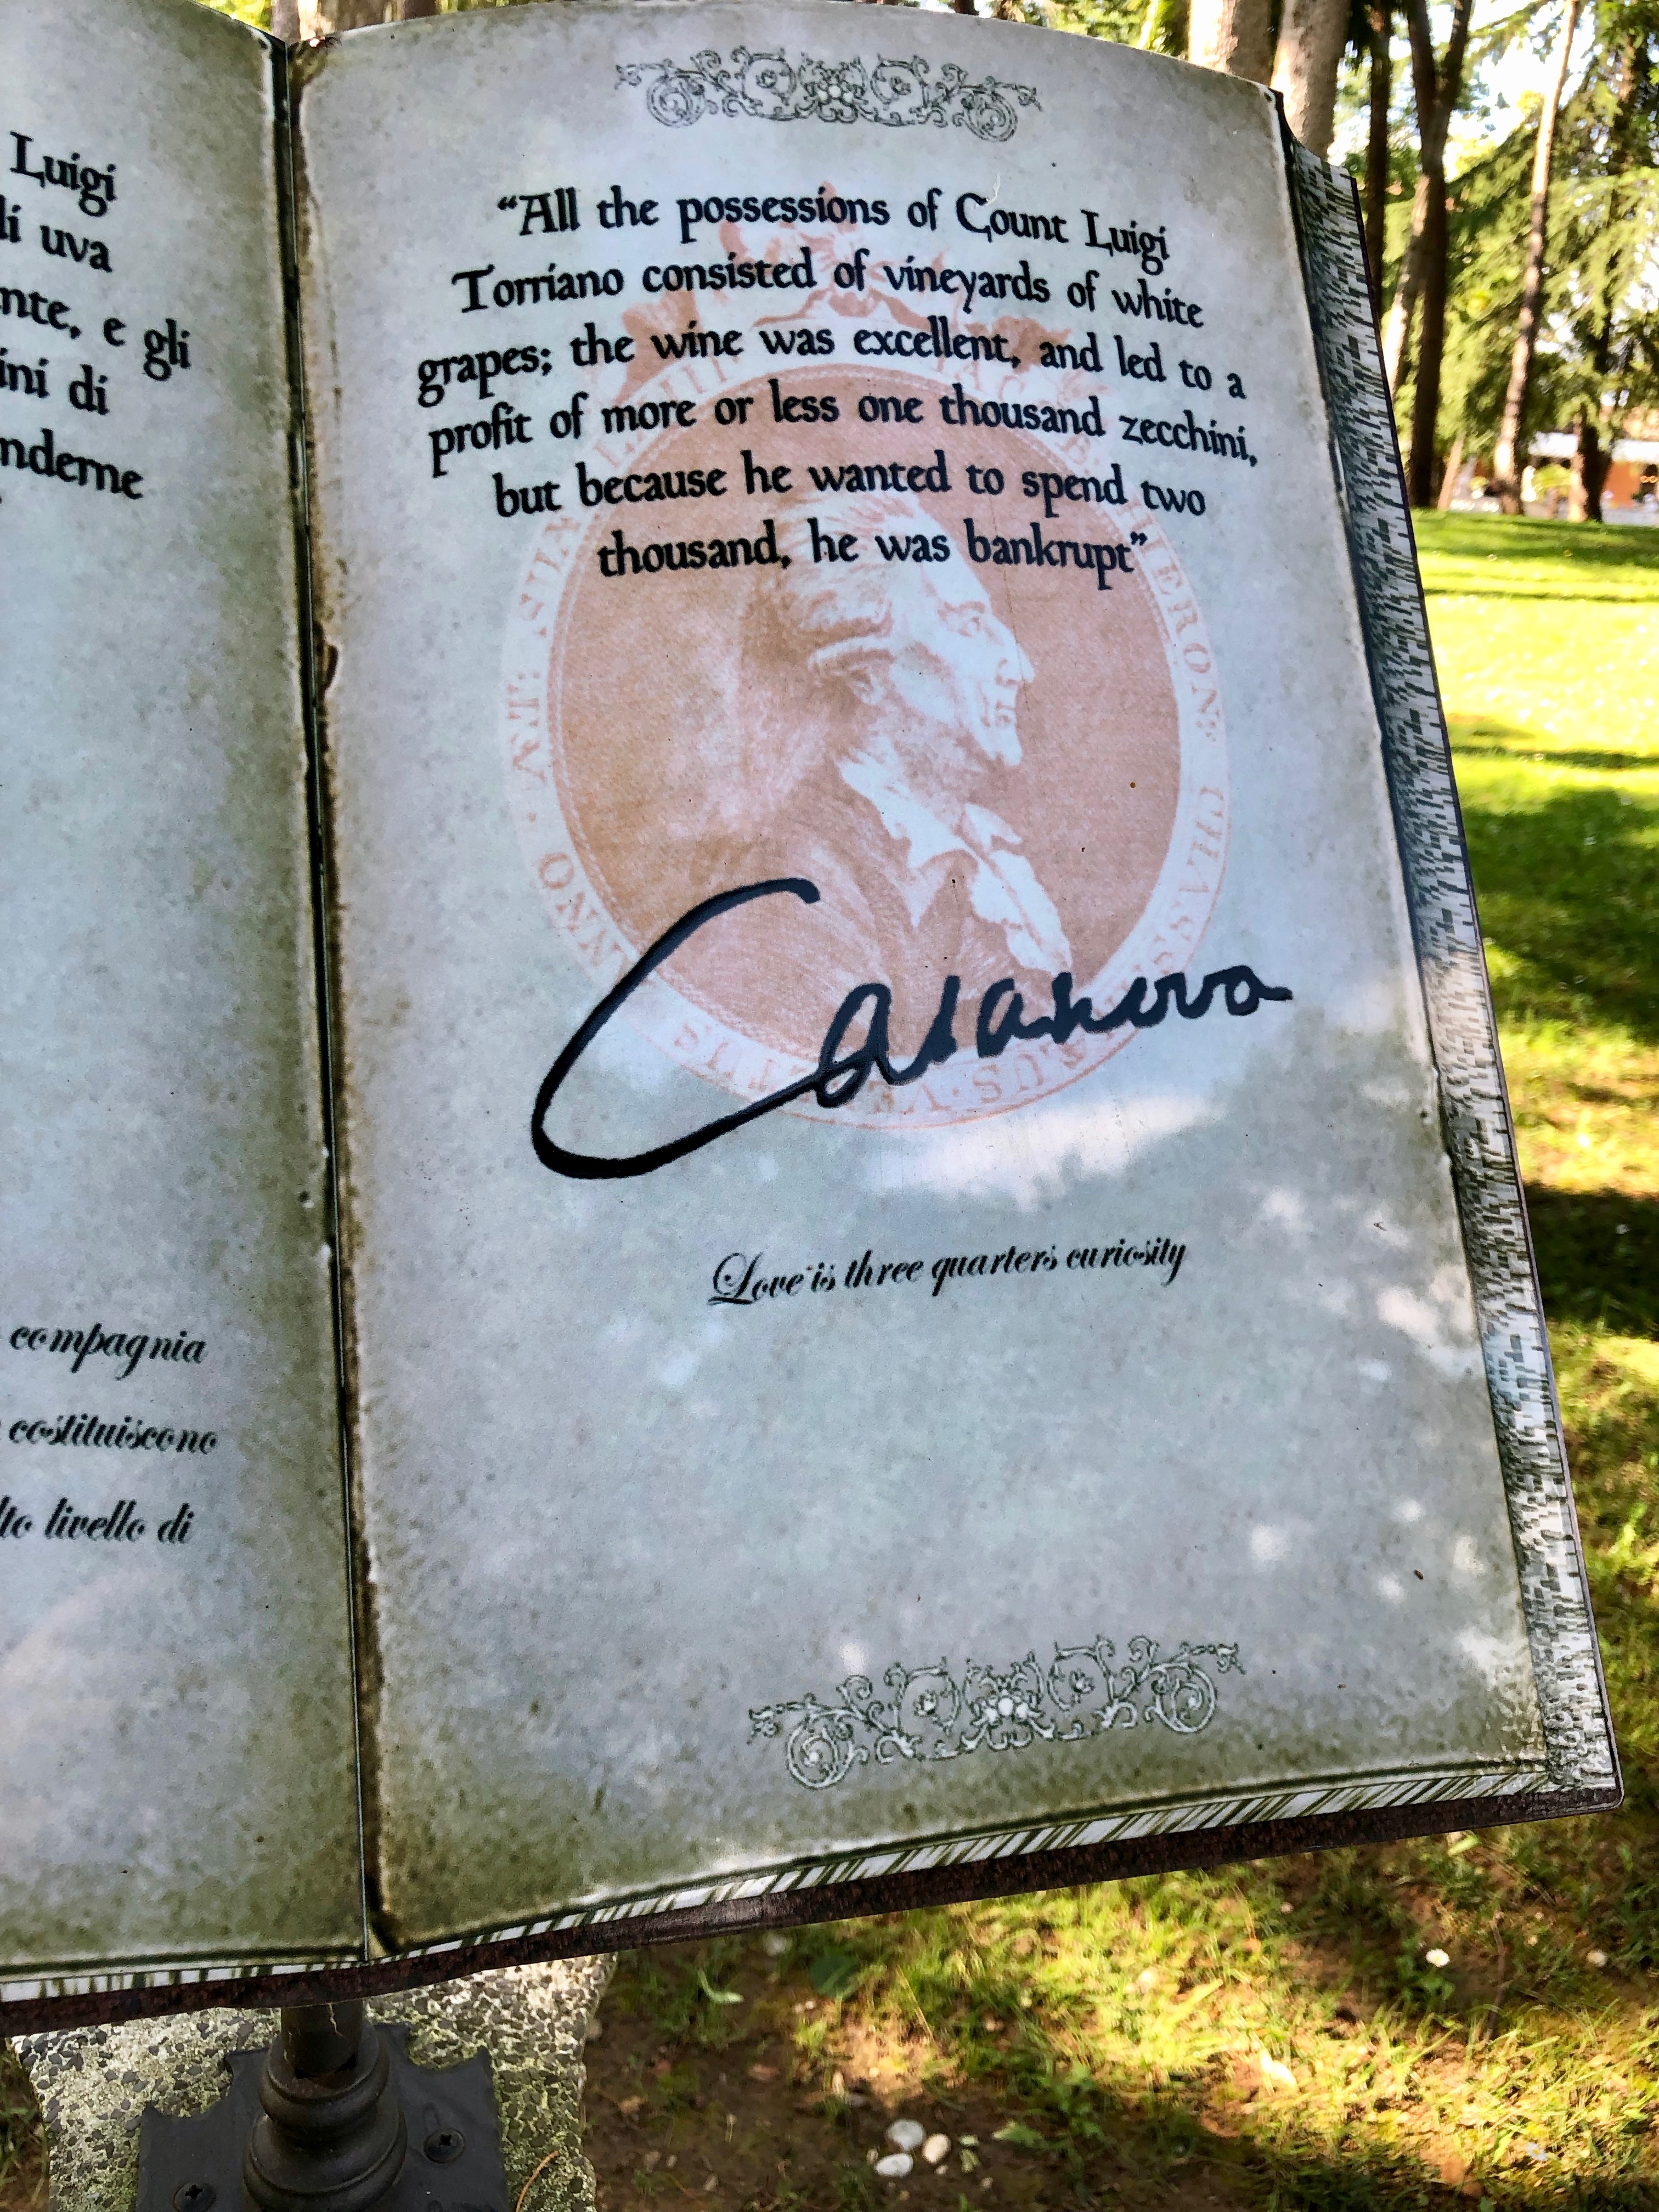 Luigi
li uva
nte, e gli
ini di
nderne
compagnia
costituiscono
lto livello di
“All the possessions of Count Luigi
Torriano consisted of vineyards of white
grapes; the wine was excellent, and led to a
profit of more or less one thousand zecchini,
but because he wanted to spend two
thousand, he was bankrupt”
Casanova
Love is three quarters curiosity